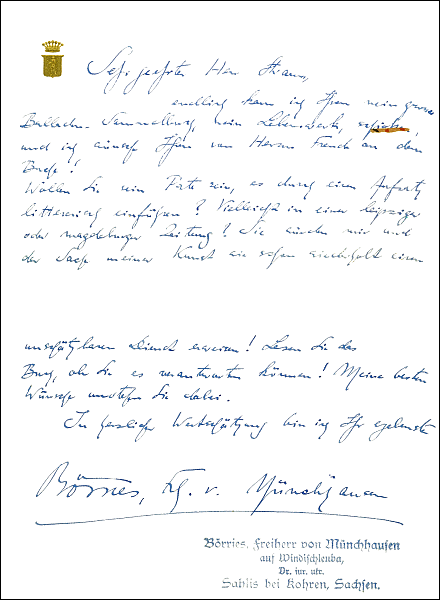 Sehr geehrter Herr Strauss,
endlich kann ich Ihnen mein grosses
Balladen-Sammelbuch, mein Lebenswerk, schicken,
und ich wünsche Ihnen von Herzen Freude an dem
Buche!
Wollen Sie nun Pate sein, es durch einen Aufsatz
litterarisch einführen? Vielleicht in einer leipziger
oder magdeburger Zeitung! Sie würden mir und
der Sache meiner Kunst wie schon wiederholt einen
unschätzbaren Dienst erweisen! Lesen Sie das
Buch, ob Sie es verantworten können! Meine besten
Wünsche umstehen Sie dabei.
In herzlicher Wertschätzung bin ich Ihr ergebenster
Börries, Frh. v. Münchhausen
Börries, Freiherr von Münchhausen
auf Windischleuba,
Dr. iur. utr.
Sahlis bei Kohren, Sachsen.